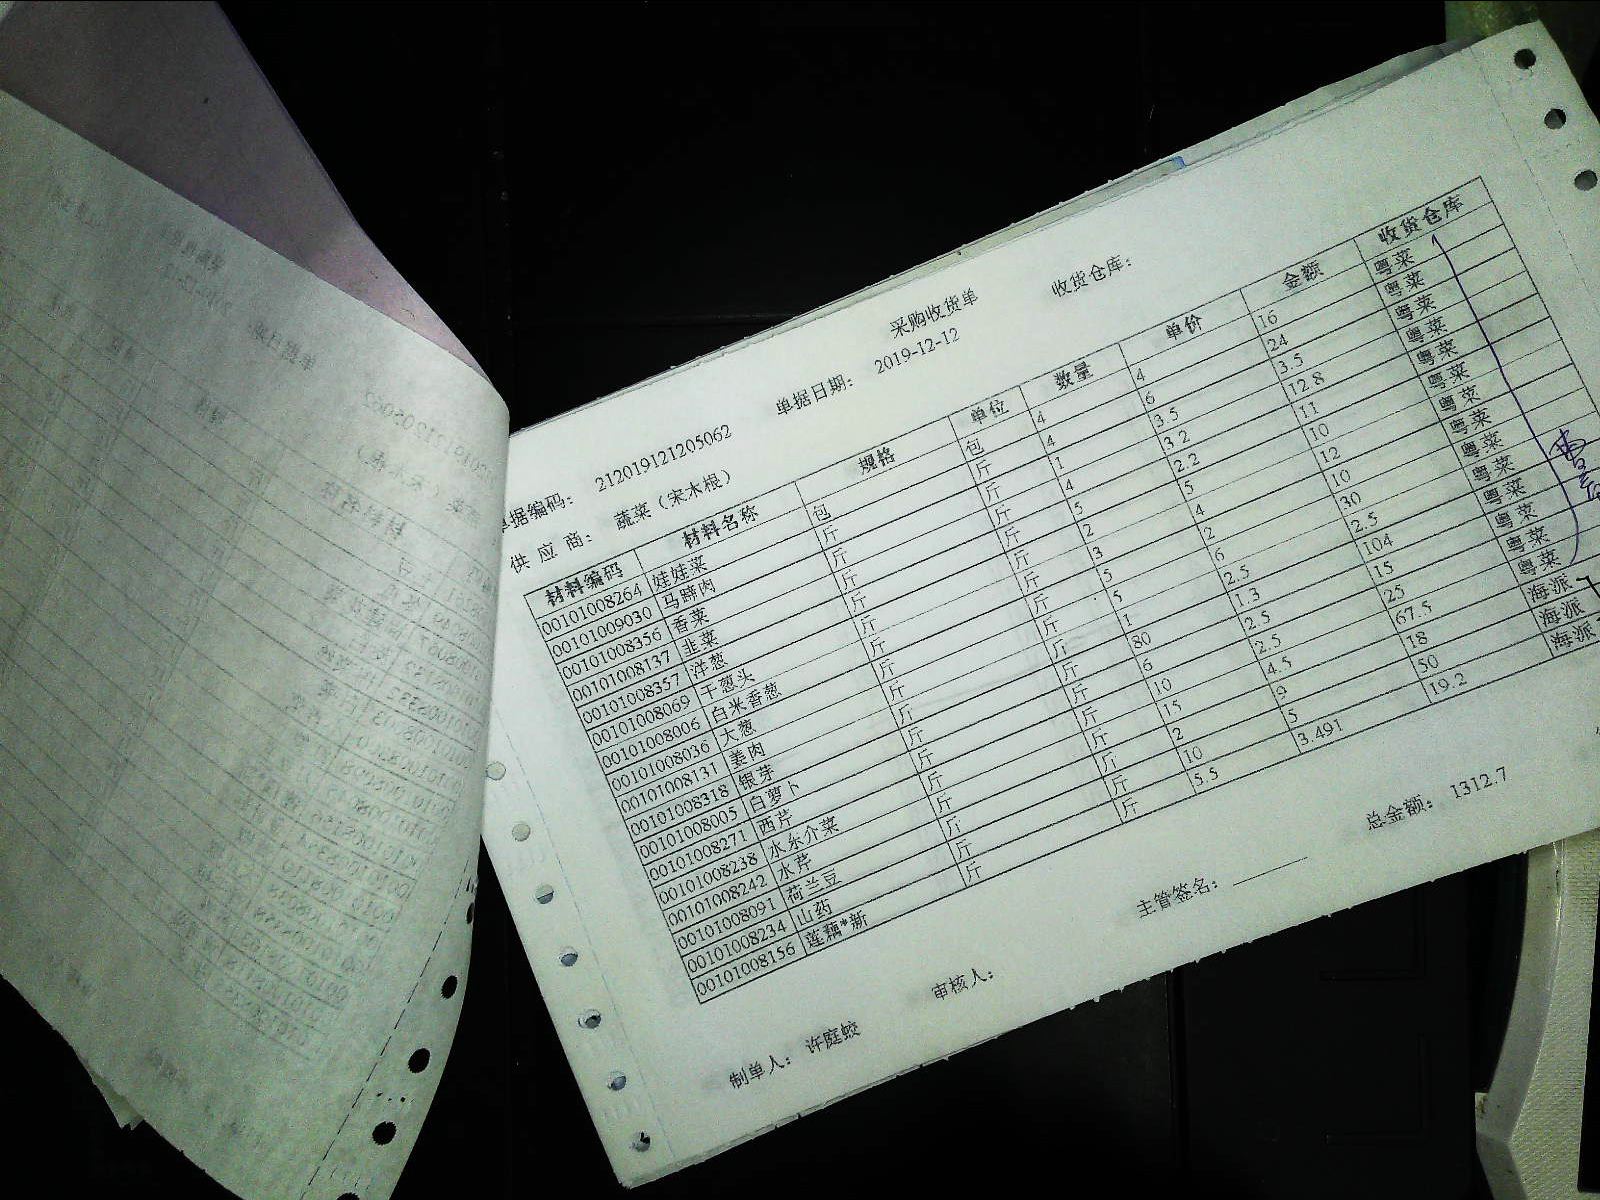 采购收货单
单据编码： 212019121205062 单据日期： 2019-12-12 收货仓库：
供 应 商： 蔬菜（宋木根）
材料编码 材料名称 规格 单位 数量 单价 金额 收货仓库
00101008264 娃娃菜 包 包 4 4 16 粤菜
00101009030 马蹄肉 斤 斤 4 6 24 粤菜
00101008356 香菜 斤 斤 1 3.5 3.5 粤菜
00101008137 韭菜 斤 斤 4 3.2 12.8 粤菜
00101008357 洋葱 斤 斤 5 2.2 11 粤菜
00101008069 干葱头 斤 斤 2 5 10 粤菜
00101008006 白米香葱 斤 斤 3 4 12 粤菜
00101008036 大葱 斤 斤 5 2 10 粤菜
00101008131 姜肉 斤 斤 5 6 30 粤菜
00101008318 银芽 斤 斤 1 2.5 2.5 粤菜
00101008005 白萝卜 斤 斤 80 1.3 104 粤菜
00101008271 西芹 斤 斤 6 2.5 15 粤菜
00101008238 水东介菜 斤 斤 10 2.5 25 粤菜
00101008242 水芹 斤 斤 15 4.5 67.5 粤菜
00101008091 荷兰豆 斤 斤 2 9 18 海派
00101008234 山药 斤 斤 10 5 50 海派
00101008156 莲藕*新 斤 斤 5.5 3.491 19.2 海派
总金额： 1312.7
制单人： 许庭蛟 审核人： 主管签名：